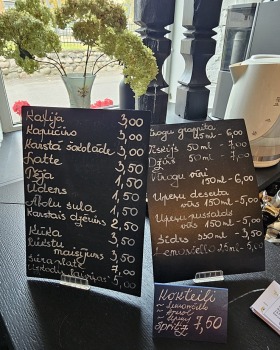 Kafija 3,00
Kapučīno 3,00
Karstā šokolāde 3,00
Latte 3,50
Tēja 1,50
Ūdens 1,50
Ābolu sula 1,50
Karstais dzēriens 2,50
Kūka 3,50
Riekstu
maisījums 3,50
Siera plate 7,00
5,00
grappa
25ml - 6,00
Viskijs 50ml - 7,00
Džins 50ml - 7,00
Vīnogu vīni
150ml - 6,00
Upeņu deserta
vīns 150ml - 5,00
Upeņu pussaldais
vīns 150ml - 5,00
Sidrs 330ml - 3,50
Limoncello 25ml - 5,00
Kokteiļi
~ Limoncello
~ Aperol
~ Upeņu
Spritz 7,50